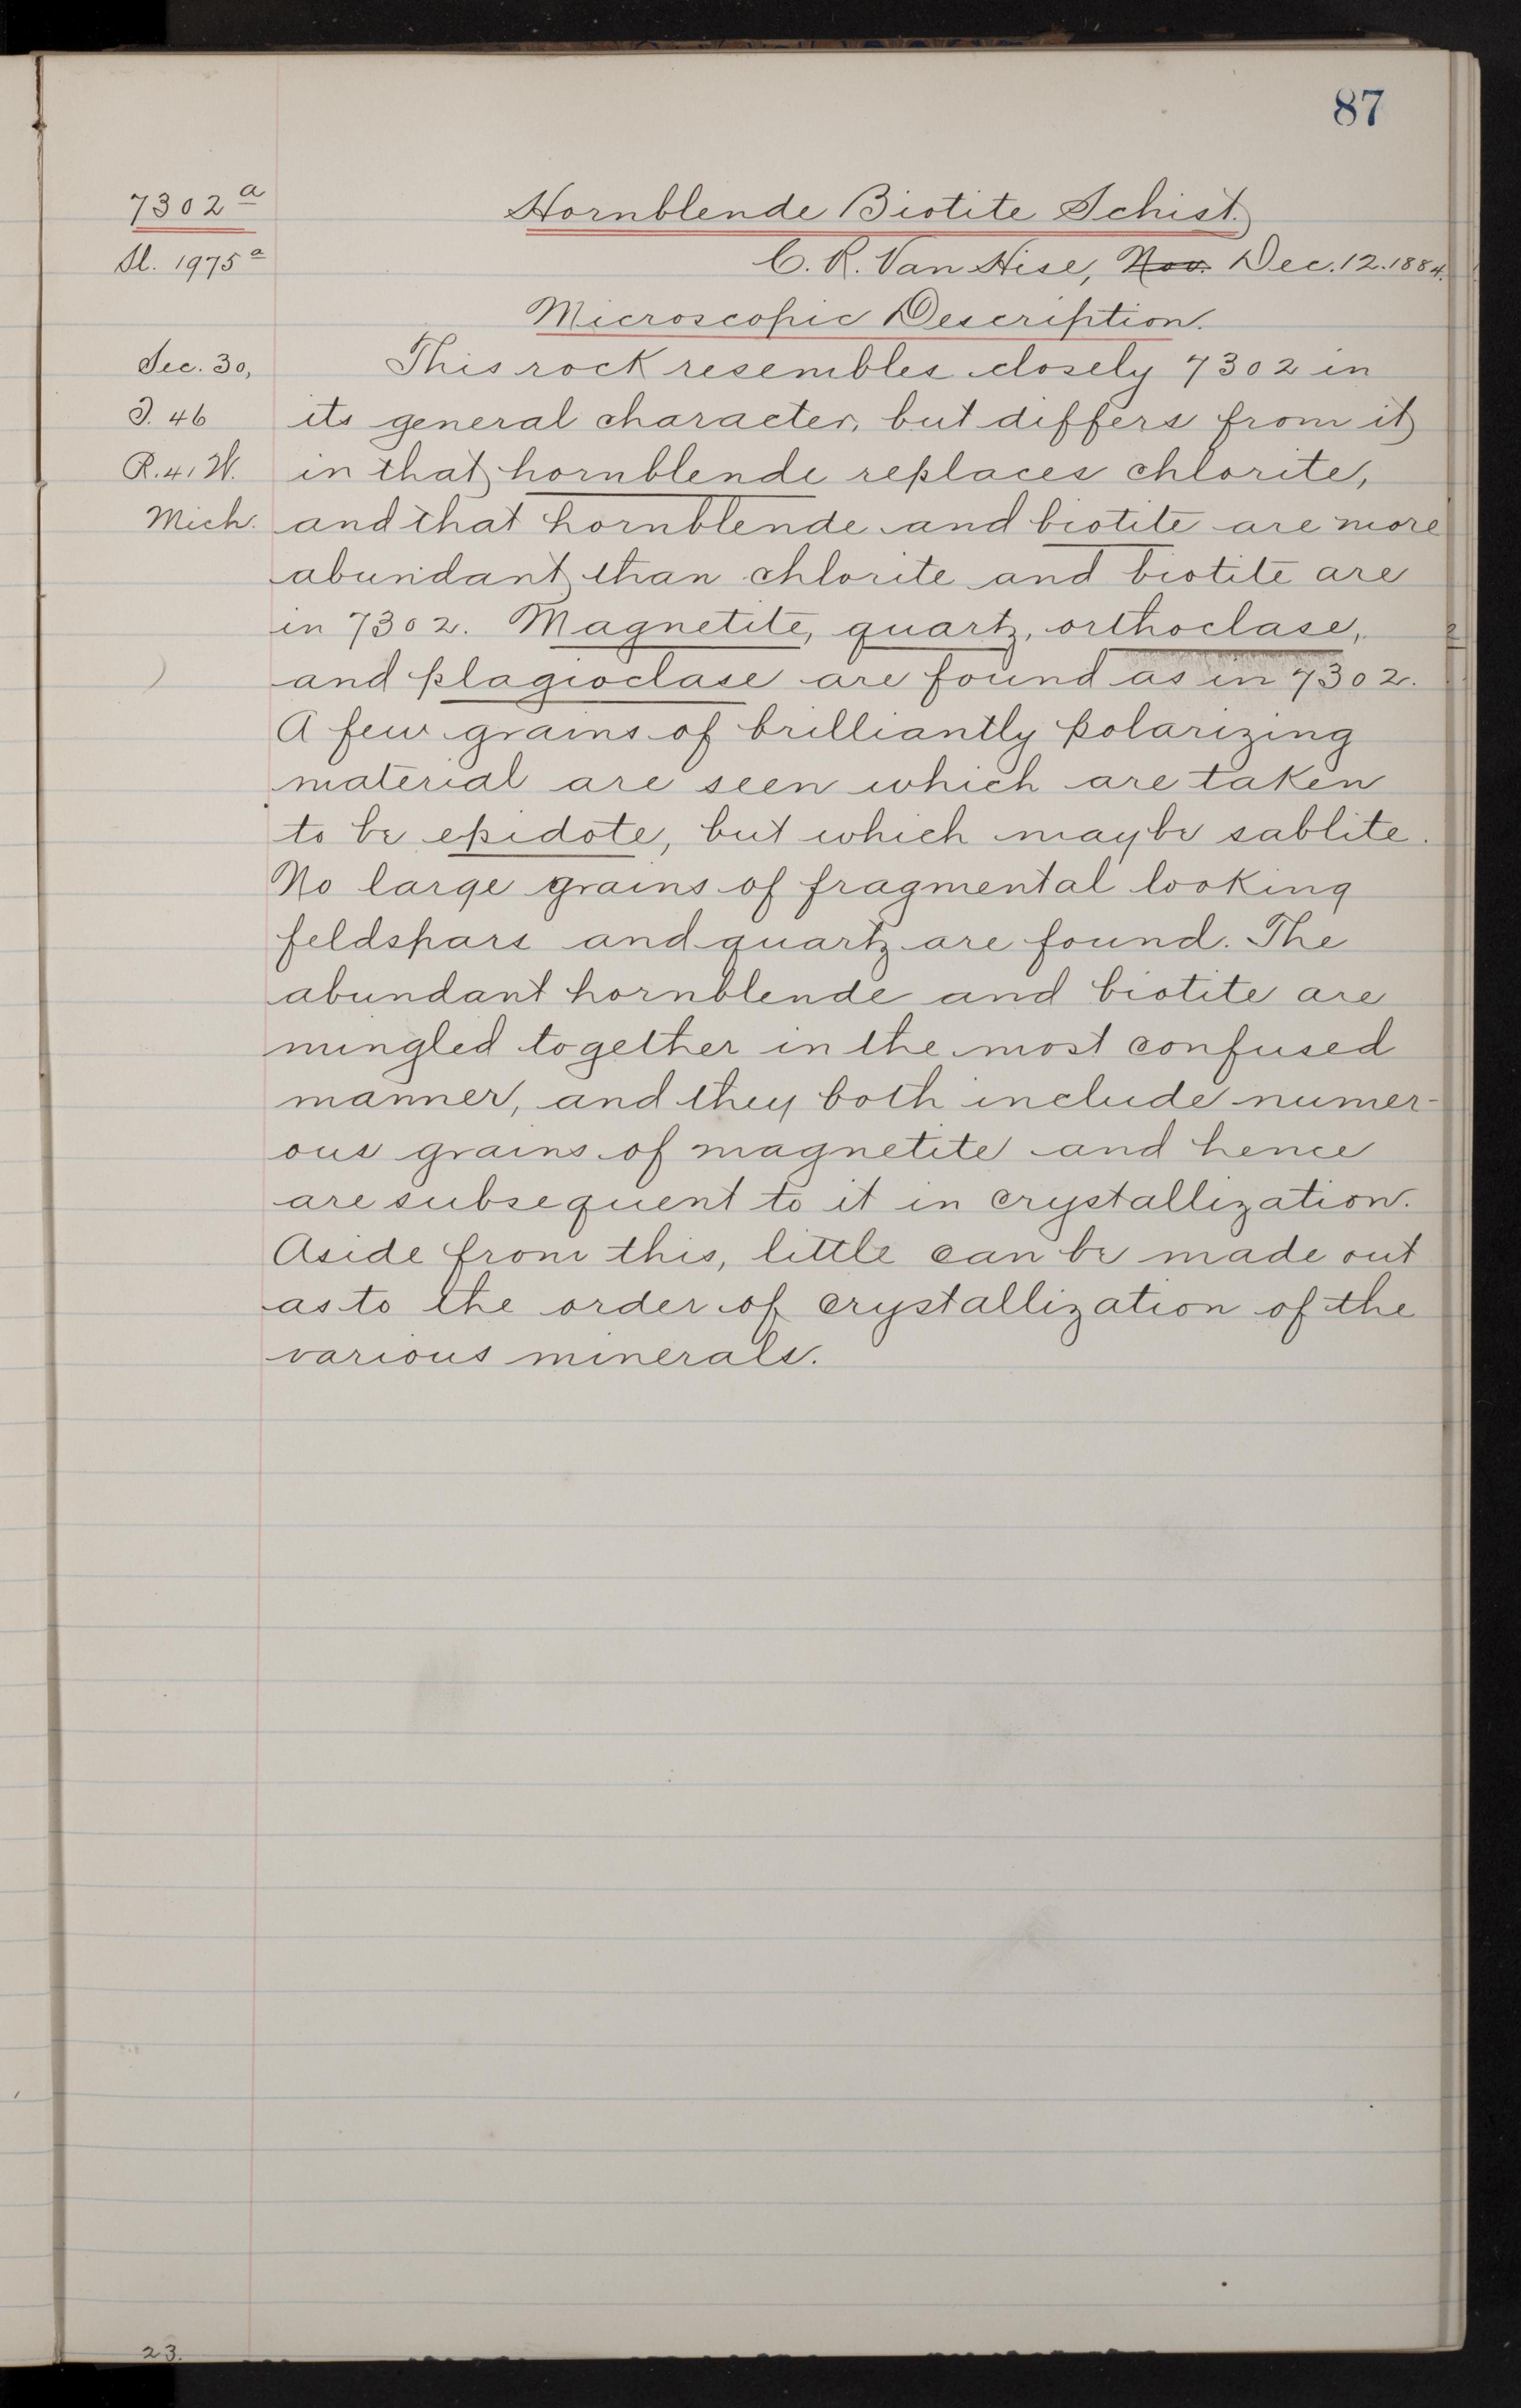 87
7302a
Hornblende Biotite Schist.
Sl. 1975a
C. R. Van Hise, Nov. Dec. 12. 1884.
Microscopic Description.
Sec. 30,
This rock resembles closely 7302 in
T. 46
its general character, but differs from it
R. 41 W.
in that hornblende replaces chlorite,
Mich.
and that hornblende and biotite are more
abundant than chlorite and biotite are
in 7302. Magnetite, quartz, orthoclase,
and plagioclase are found as in 7302.
A few grains of brilliantly polarizing
material are seen which are taken
to be epidote, but which may be sablite.
No large grains of fragmental looking
feldspars and quartz are found. The
abundant hornblende and biotite are
mingled together in the most confused
manner, and they both include numer-
ous grains of magnetite and hence
are subsequent to it in crystallization.
Aside from this, little can be made out
as to the order of crystallization of the
various minerals.
23.